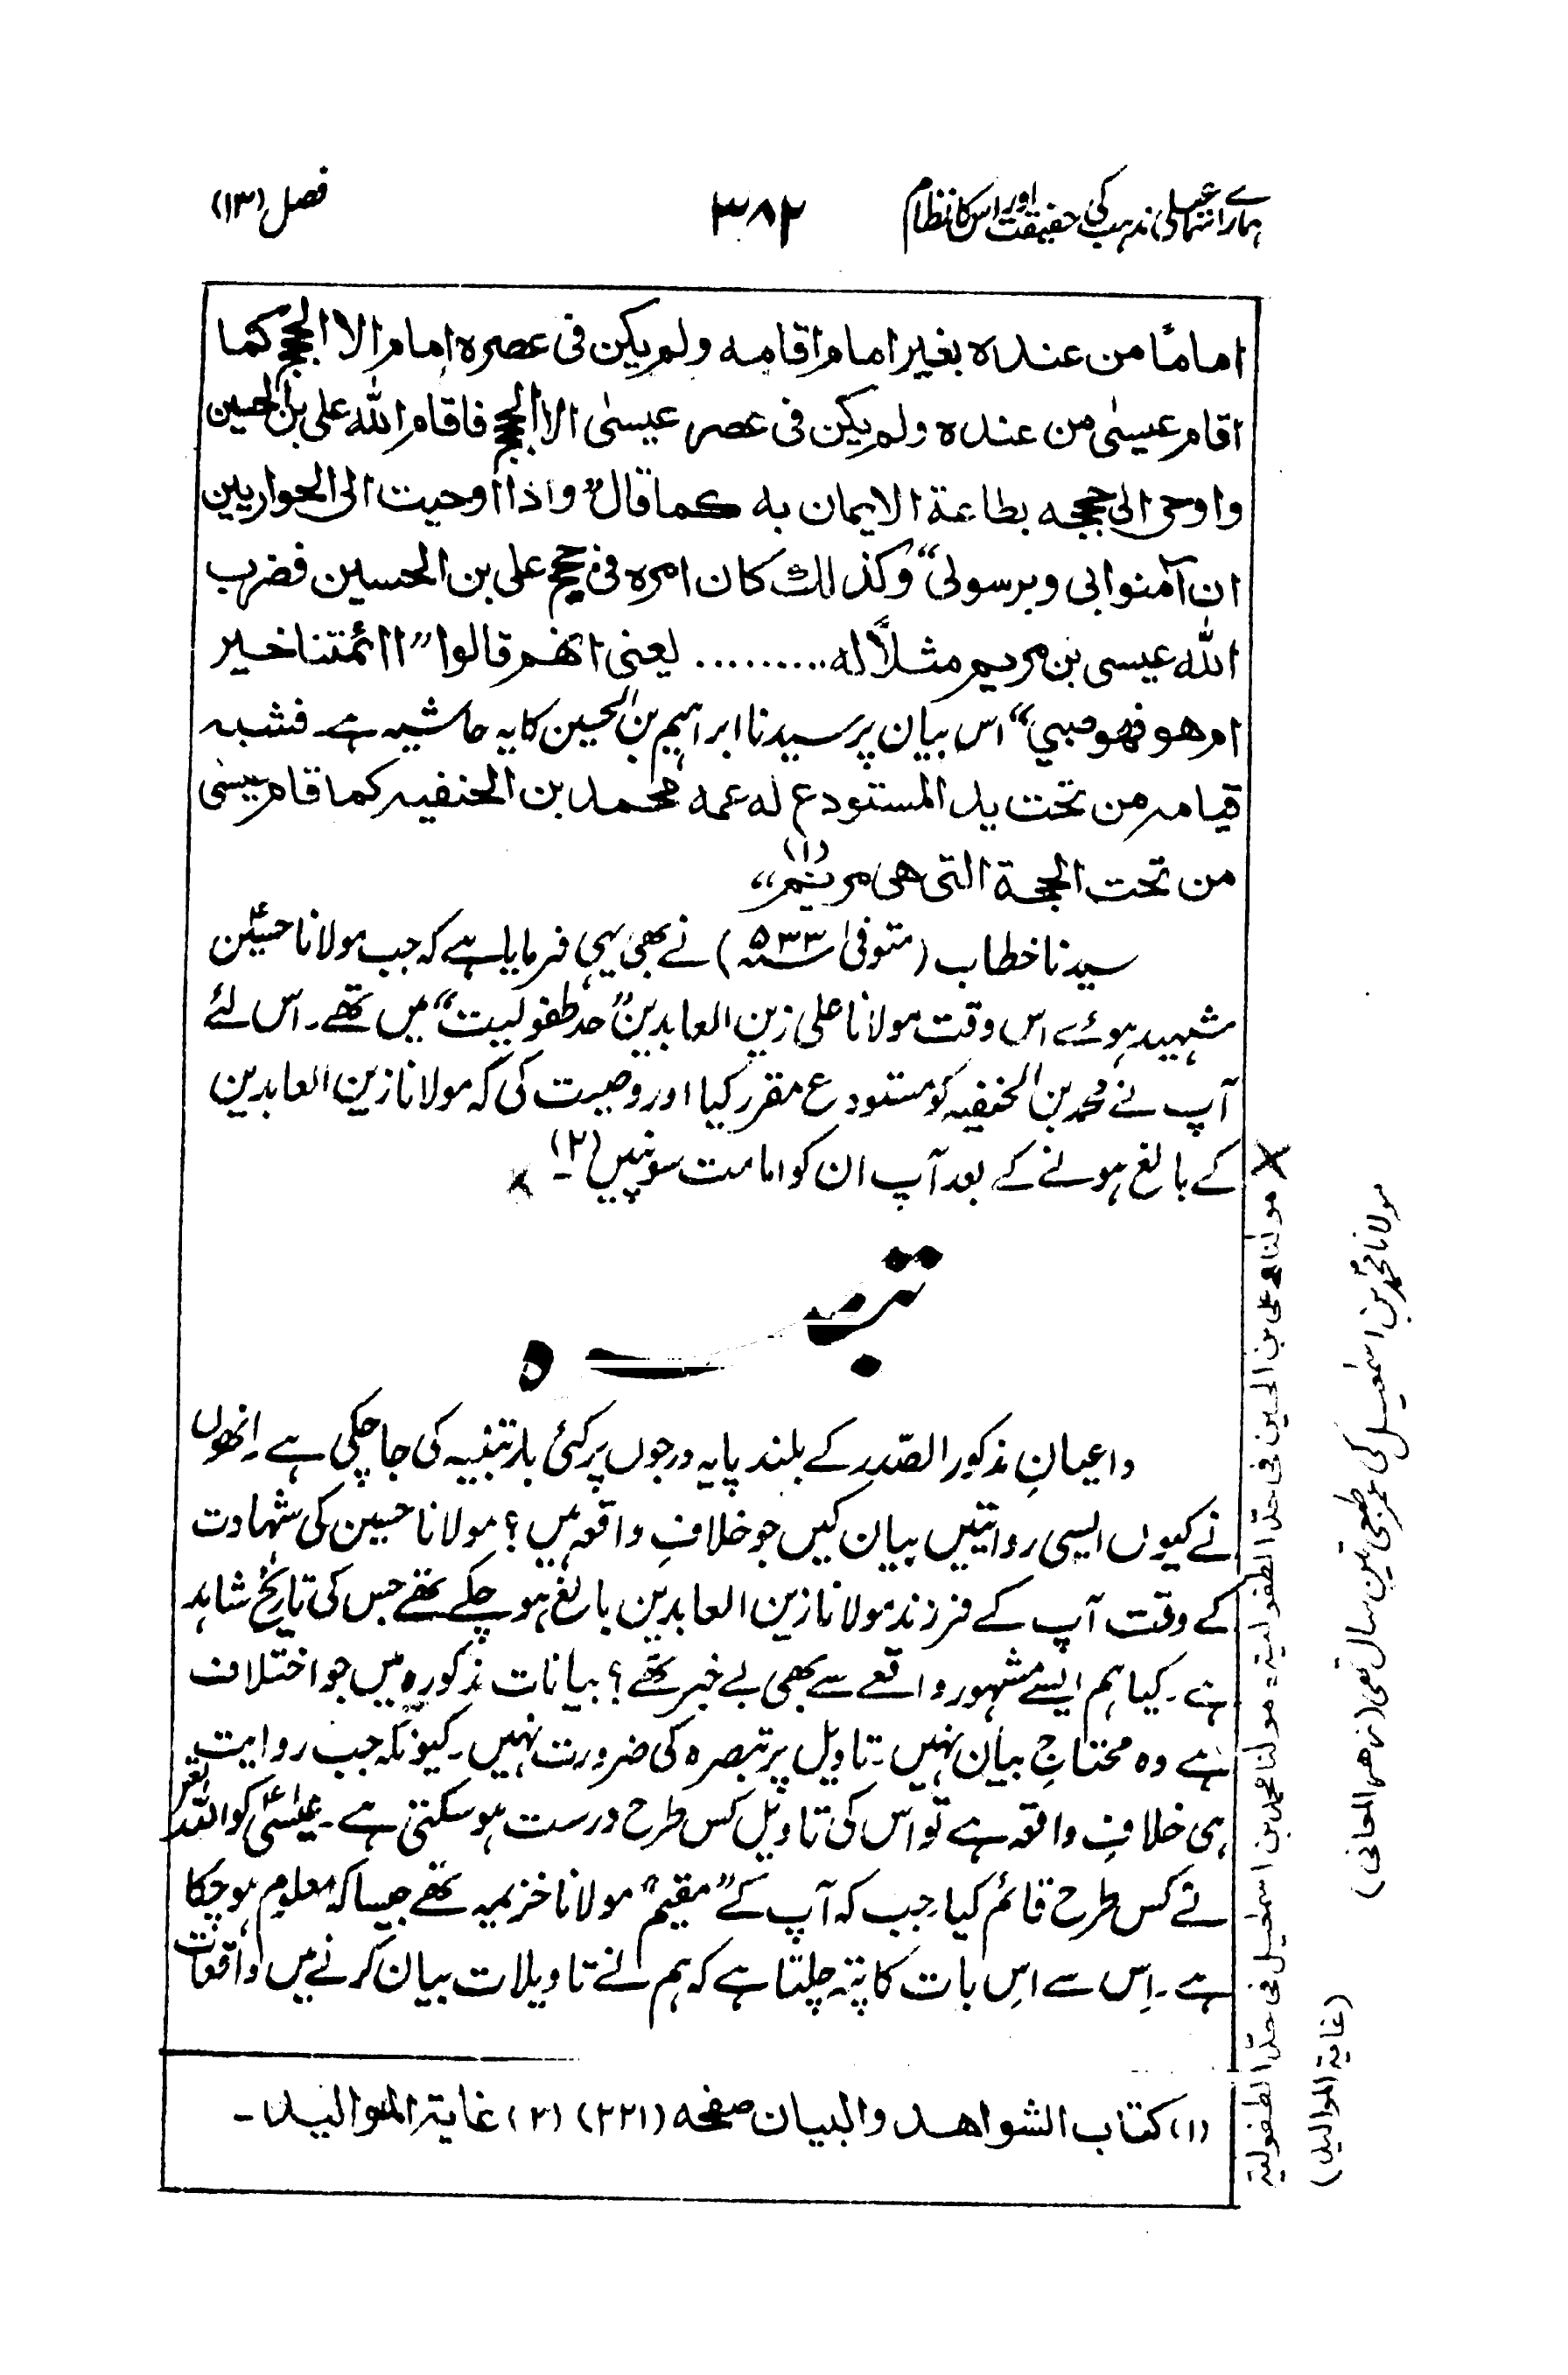 ہمارے اسماعیلی مذہب کی حقیقت اور اس کا نظام
۳۸۲
فصل (۱۳)
امامًا من عنده بغير امام اقامه ولم يكن فى عصره امام الا الحجج كما
اقام عيسىٰ من عنده ولم يكن فى عصر عيسىٰ الا الحجج فاقام الله على بن الحسين
واوحى الى حججه بطاعة الايمان به كما قال "واذا اوحيت الى الحواريين
ان آمنوا بى وبرسولى" وكذلك كان امره فى حجج على بن الحسين فضرب
الله عيسى بن مريم مثلاً له......... يعنى انهم قالوا "اائمتنا خير
ام هو فهو مبي" اس بیان پر سیدنا ابراہیم بن الحسین کا یہ حاشیہ ہے۔ فشبه
قيامه من تحت يد المستودع له عمه محمد بن الحنفيه كما قام عيسٰى
من تحت الحجة التى هى مريم (۱)"
سیدنا خطاب (متوفی ۵۳۳ھ) نے بھی یہی فرمایا ہے کہ جب مولانا حسینؑ
شہید ہوئے اس وقت مولانا علی زین العابدین "حد طفولیت" میں تھے۔ اس لئے
آپ نے محمد بن الحنفیہ کو مستودع مقرر کیا اور وصیت کی کہ مولانا زین العابدین
کے بالغ ہونے کے بعد آپ ان کو امامت سونپیں (۲)۔ ×
تبصرہ
داعیانِ مذکور الصّدر کے بلند پایہ درجوں پر کئی بار تنبیہ کی جا چکی ہے۔ انھوں
نے کیوں ایسی روایتیں بیان کیں جو خلافِ واقعہ ہیں؟ مولانا حسین کی شہادت
کے وقت آپ کے فرزند مولانا زین العابدین بالغ ہو چکے تھے جس کی تاریخ شاہد
ہے۔ کیا ہم ایسے مشہور واقعے سے بھی بے خبر تھے؟ بیانات مذکورہ میں جو اختلاف
ہے وہ محتاجِ بیان نہیں۔ تاویل پر تبصرہ کی ضرورت نہیں۔ کیونکہ جب روایت
ہی خلافِ واقعہ ہے تو اس کی تاویل کس طرح درست ہو سکتی ہے۔ عیسیٰؑ کو اللہ تعالیٰ
نے کس طرح قائم کیا۔ جب کہ آپ کے "مقیم" مولانا خزیمہ تھے جیسا کہ معلوم ہو چکا
ہے۔ اِس سے اس بات کا پتہ چلتا ہے کہ ہم نے تاویلات بیان کرنے میں واقعات
(۱) کتاب الشواهد والبیان صفحه (۲۲۱) (۲) غایۃ الموالید۔
× مولنا علی بن الحسین فی حدّ الطفولية۔ مولنا محمد بن اسمعيل فى حدّ الطفولية
(غاية المواليد)
مولانا محمدؑ بن اسمٰعیل کی عمر طبعی تین سال تھی (زهر المعانی)